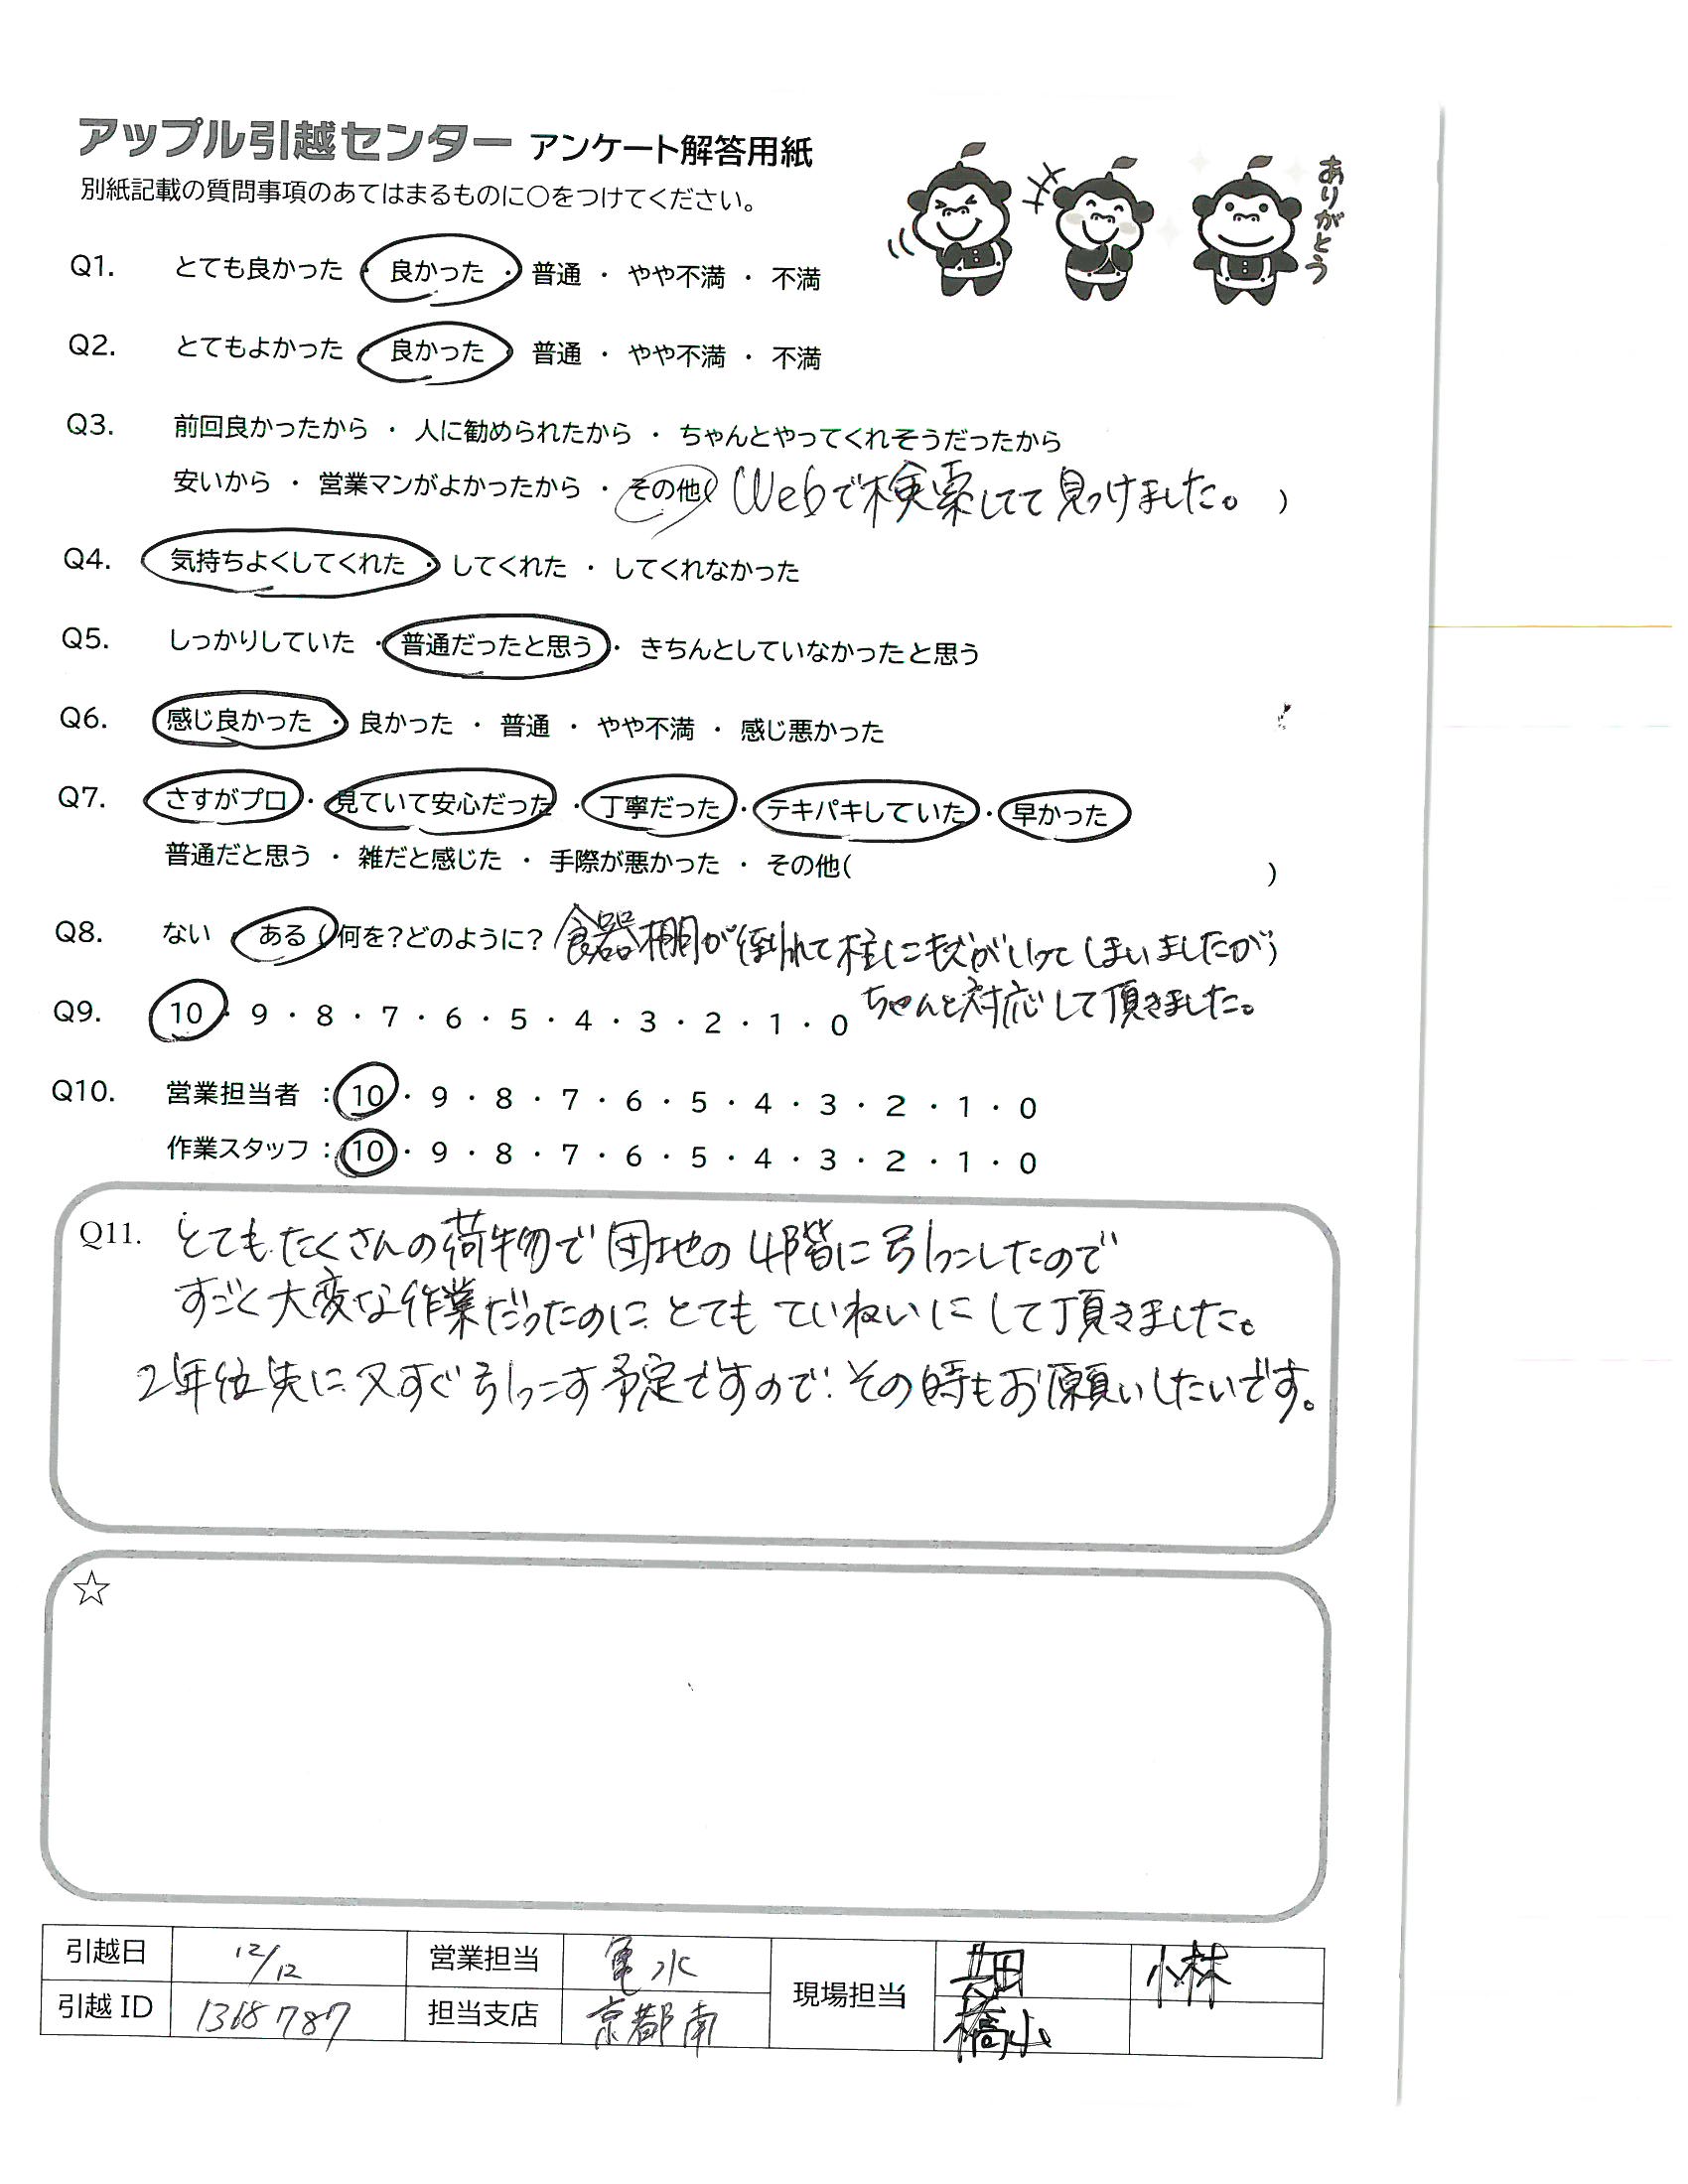 アップル引越センター アンケート解答用紙
別紙記載の質問事項のあてはまるものに○をつけてください。
ありがとう
Q1. とても良かった ・ 良かった ・ 普通 ・ やや不満 ・ 不満
Q2. とてもよかった ・ 良かった ・ 普通 ・ やや不満 ・ 不満
Q3. 前回良かったから ・ 人に勧められたから ・ ちゃんとやってくれそうだったから
安いから ・ 営業マンがよかったから ・ その他( Webで検索してて見つけました。 )
Q4. 気持ちよくしてくれた ・ してくれた ・ してくれなかった
Q5. しっかりしていた ・ 普通だったと思う ・ きちんとしていなかったと思う
Q6. 感じ良かった ・ 良かった ・ 普通 ・ やや不満 ・ 感じ悪かった
Q7. さすがプロ ・ 見ていて安心だった ・ 丁寧だった ・ テキパキしていた ・ 早かった
普通だと思う ・ 雑だと感じた ・ 手際が悪かった ・ その他( )
Q8. ない ・ ある ( 何を？どのように？ 食器棚が倒れて柱にキズがいってしまいましたが )
ちゃんと対応して頂きました。
Q9. 10 ・ 9 ・ 8 ・ 7 ・ 6 ・ 5 ・ 4 ・ 3 ・ 2 ・ 1 ・ 0
Q10. 営業担当者 ： 10 ・ 9 ・ 8 ・ 7 ・ 6 ・ 5 ・ 4 ・ 3 ・ 2 ・ 1 ・ 0
作業スタッフ： 10 ・ 9 ・ 8 ・ 7 ・ 6 ・ 5 ・ 4 ・ 3 ・ 2 ・ 1 ・ 0
Q11. とてもたくさんの荷物で団地の4階に引っこしたので
すごく大変な作業だったのに とても ていねいにして頂きました。
2年位先に又すぐ引っこす予定ですので、その時もお願いしたいです。
☆
引越日 12/12 営業担当 亀水 現場担当 小林
引越 ID 1368787 担当支店 京都南